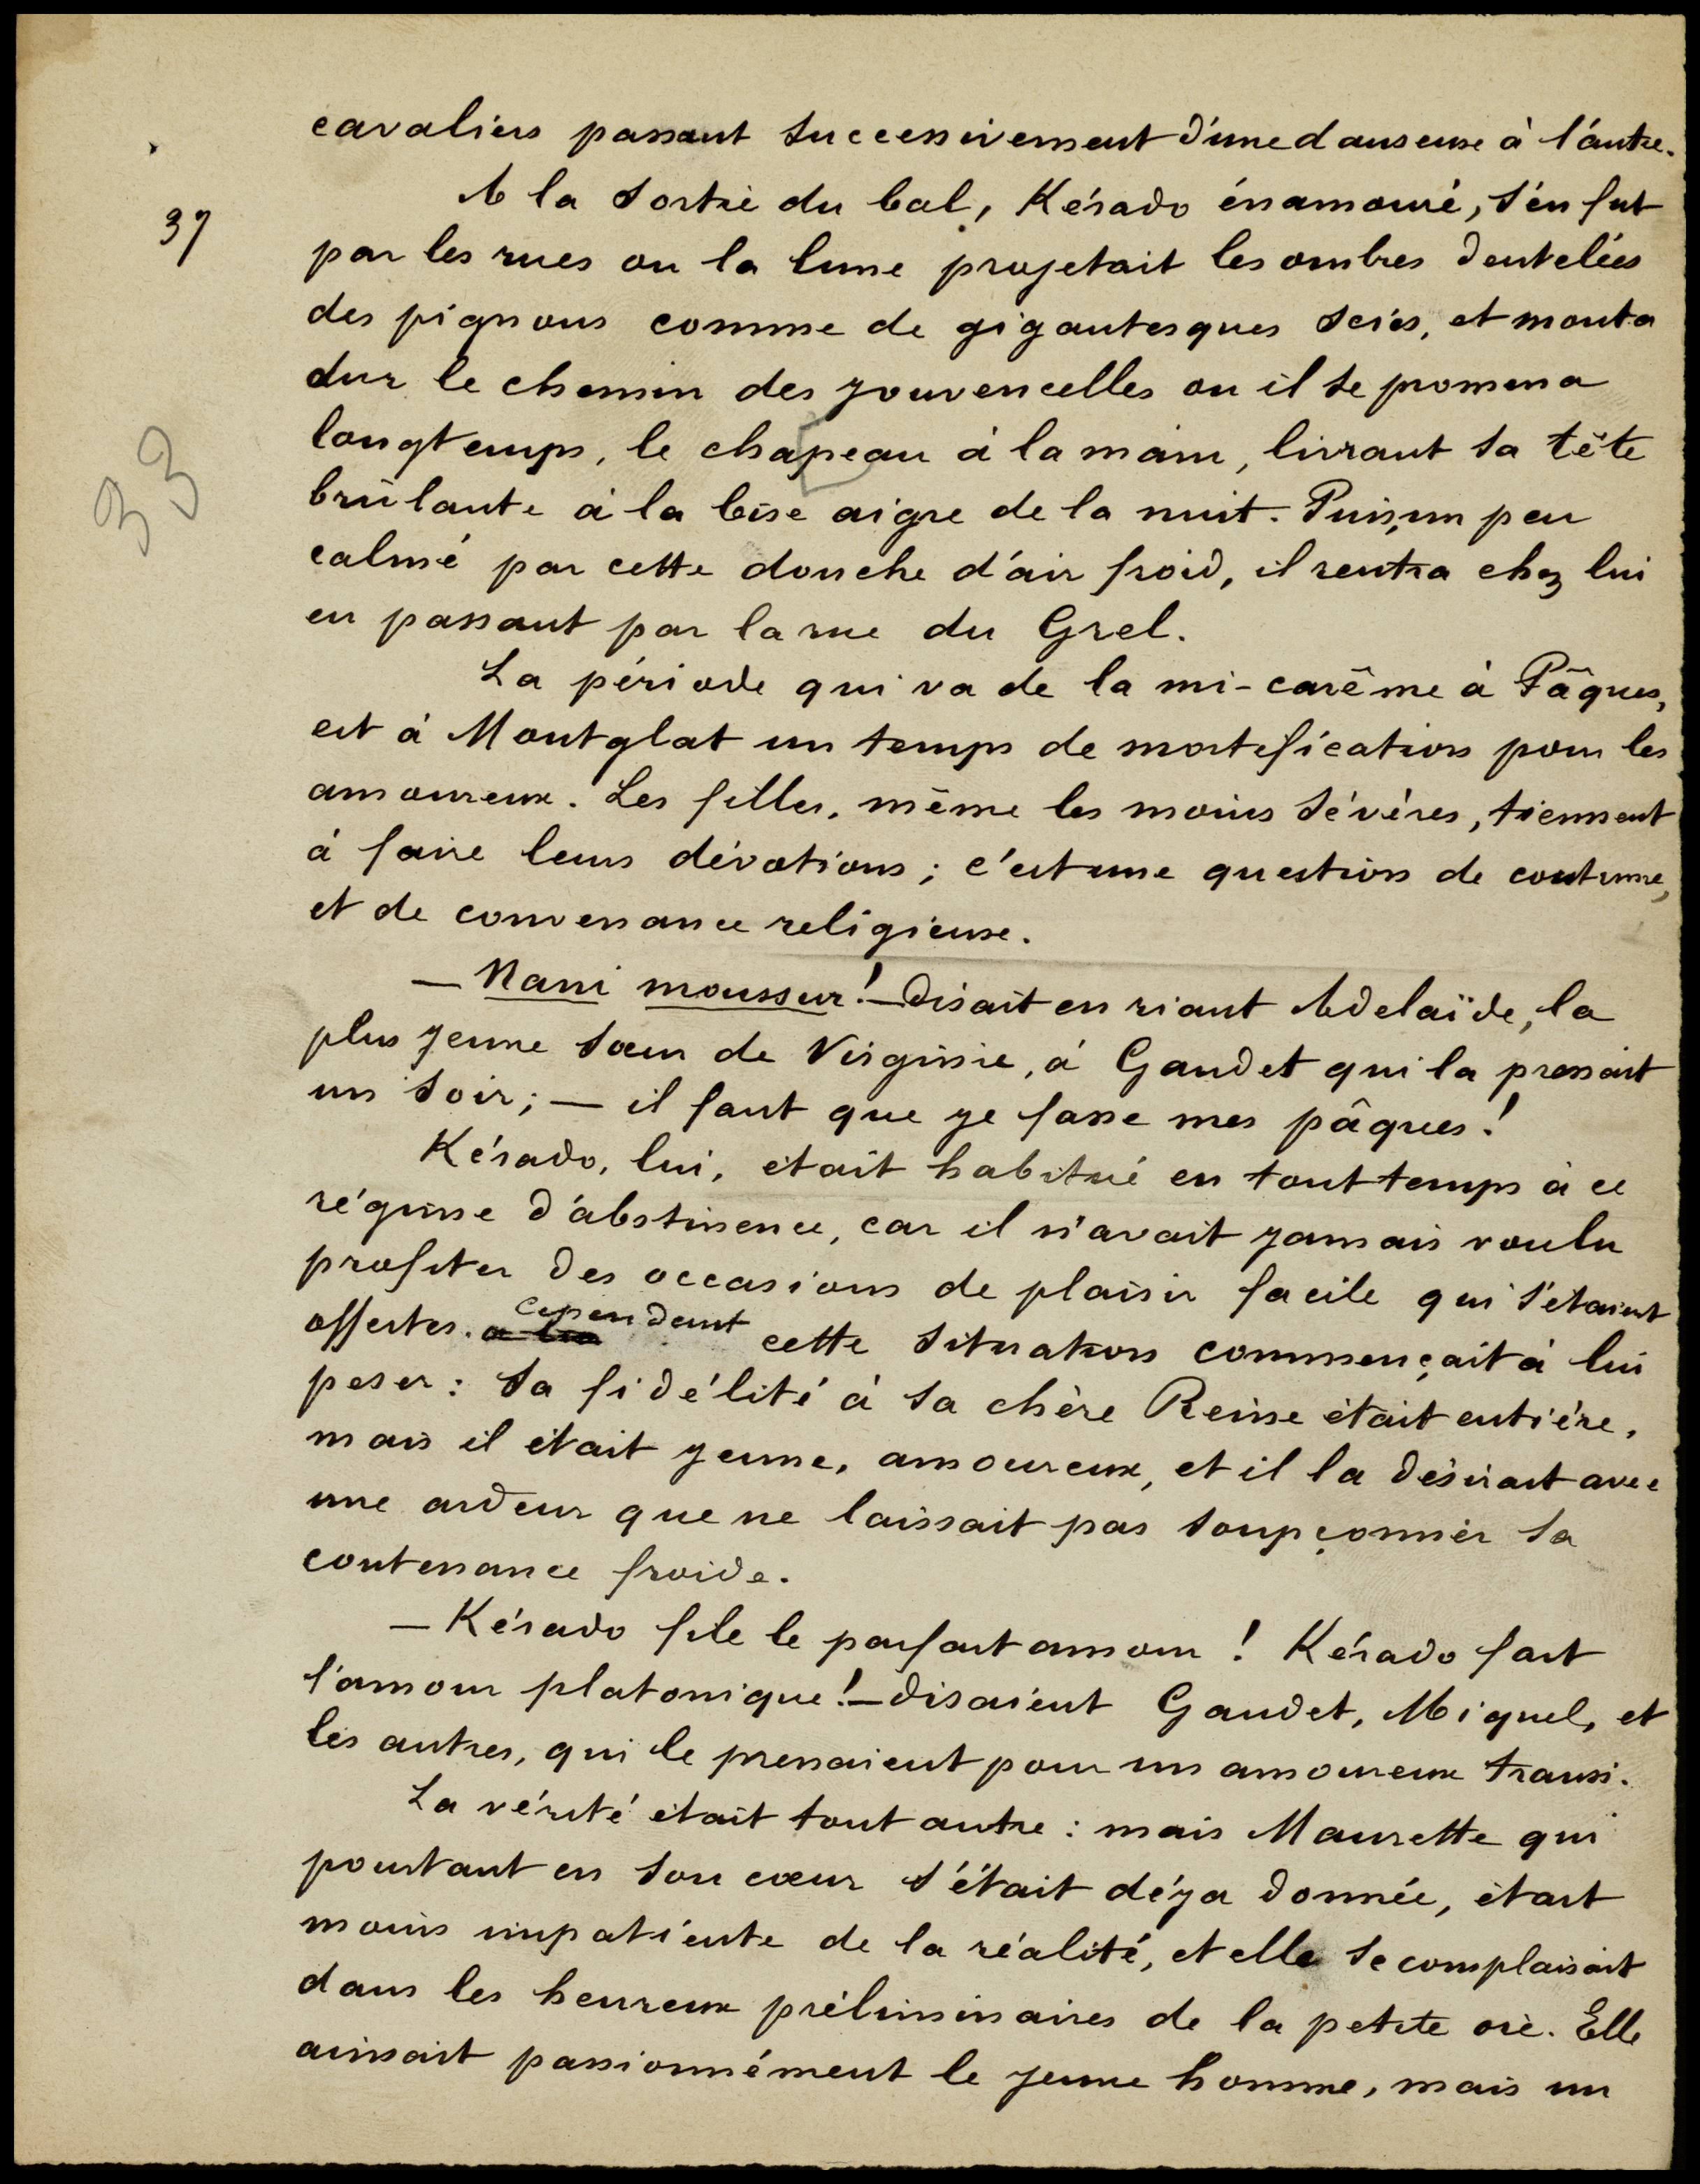 cavaliers passant successivement d'une danseuse à l'autre.
A la sortie du bal, Kérado énamouré, s'en fut
37
par les rues ou la lune projetait les ombres dentelées
des pignons comme de gigantesques scies, et monta
sur le chemin des jouvencelles ou il se promena
longtemps, le chapeau à la main, livrant sa tête
33
brûlante à la bise aigre de la nuit. Puis, un peu
calmé par cette douche d'air froid, il rentra chez lui
en passant par la rue du Grel.
La période qui va de la mi-carême à Pâques,
est à Montglat un temps de mortification pour les
amoureux. Les filles, même les moins sévères, tiennent
à faire leurs dévotions ; c'est une question de coutume,
et de convenance religieuse.
— Nani moussur ! — disait en riant Adelaïde, la
plus jeune sœur de Virginie, à Gaudet qui la pressait
un soir ; — il faut que je fasse mes pâques !
Kérado, lui, était habitué en tout temps à ce
régime d'abstinence, car il n'avait jamais voulu
profiter des occasions de plaisir facile qui s'étaient
offertes. cependant cette situation commençait à lui
peser : sa fidélité à sa chère Reine était entière,
mais il était jeune, amoureux, et il la désirait avec
une ardeur que ne laissait pas soupçonner sa
contenance froide.
— Kérado file le parfait amour ! Kérado fait
l'amour platonique ! — disaient Gaudet, Miquel, et
les autres, qui le prenaient pour un amoureux transi.
La vérité était tout autre : mais Maurette qui
pourtant en son cœur s'était déja donnée, était
moins impatiente de la réalité, et elle se complaisait
dans les heureux préliminaires de la petite oie. Elle
aimait passionnément le jeune homme, mais un